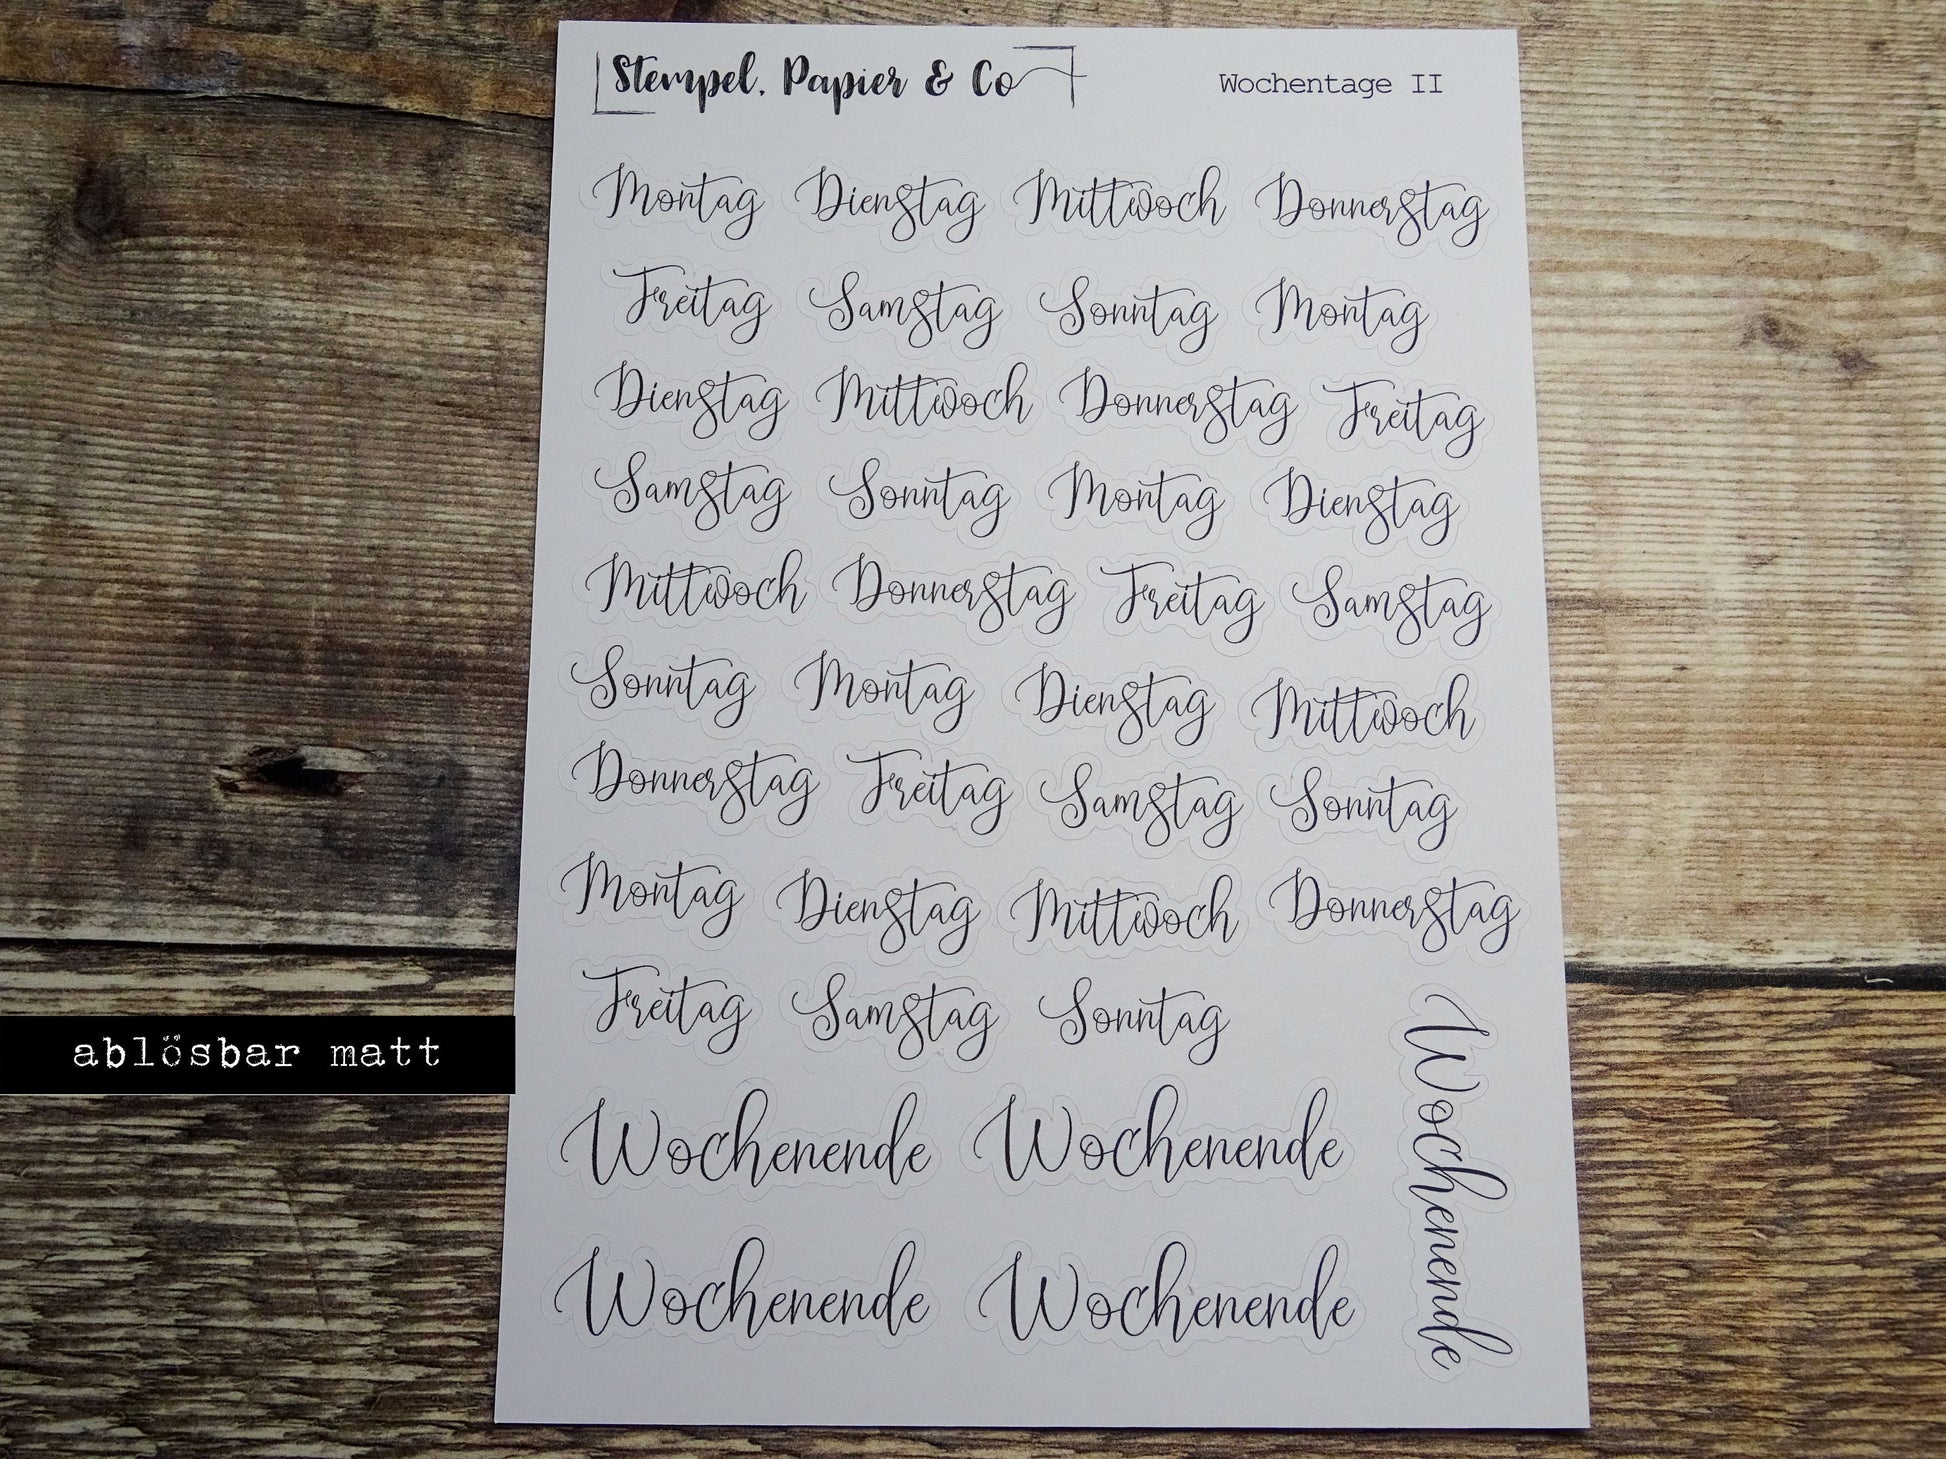 Stempel, Papier & Co
Wochentage II
Montag Dienstag Mittwoch Donnerstag
Freitag Samstag Sonntag Montag
Dienstag Mittwoch Donnerstag Freitag
Samstag Sonntag Montag Dienstag
Mittwoch Donnerstag Freitag Samstag
Sonntag Montag Dienstag Mittwoch
Donnerstag Freitag Samstag Sonntag
Montag Dienstag Mittwoch Donnerstag
Freitag Samstag Sonntag
ablösbar matt
Wochenende Wochenende
Wochenende
Wochenende Wochenende